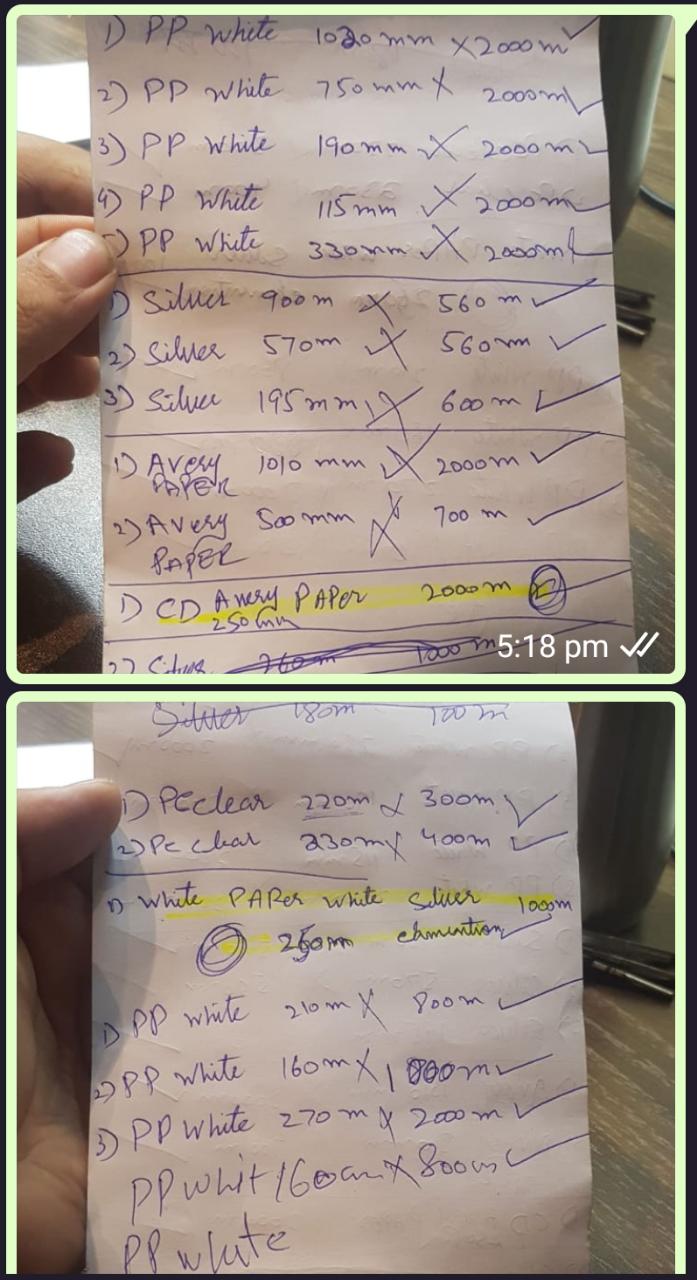 1) PP White 1020 mm X 2000 m
2) PP White 750 mm X 2000 m
3) PP White 190 mm X 2000 m
4) PP White 115 mm X 2000 m
5) PP White 330 mm X 2000 m
1) Silver 900 m X 560 m
2) Silver 570 m X 560 m
3) Silver 195 mm X 600 m
1) Avery 1010 mm X 2000 m
PAPER
2) Avery 500 mm X 700 m
PAPER
1) CD Avery PAPer 2000 m
250 mm
2) Silver 260m 1000 m
5:18 pm
Silver 180m 100 m
1) PE clear 220m X 300m
2) Pe clear 230m X 400m
1) White PAPer white Silver 1000m
250m
1) PP white 210m X 800m
2) PP White 160m X
3) PP White 270 m X 2000 m
PP Whit 160cm X 800cm
PP white